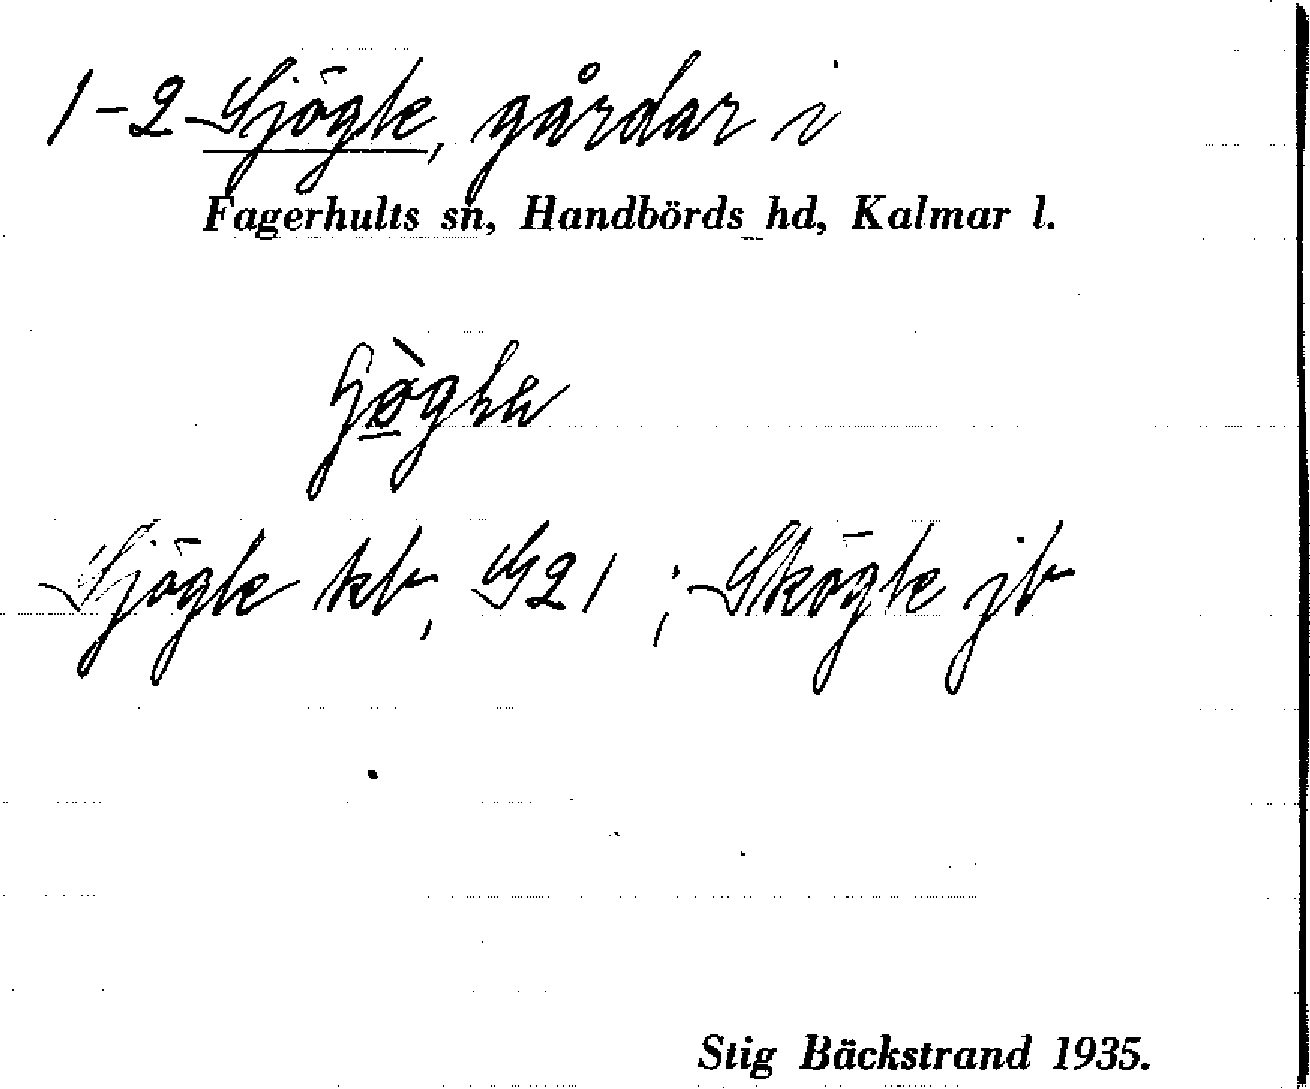 1-2 Sjögle, gårdar i
Fagerhults sn, Handbörds hd, Kalmar l.
Sjögle kb, G21 ; Skögle jb
Stig Bäckstrand 1935.